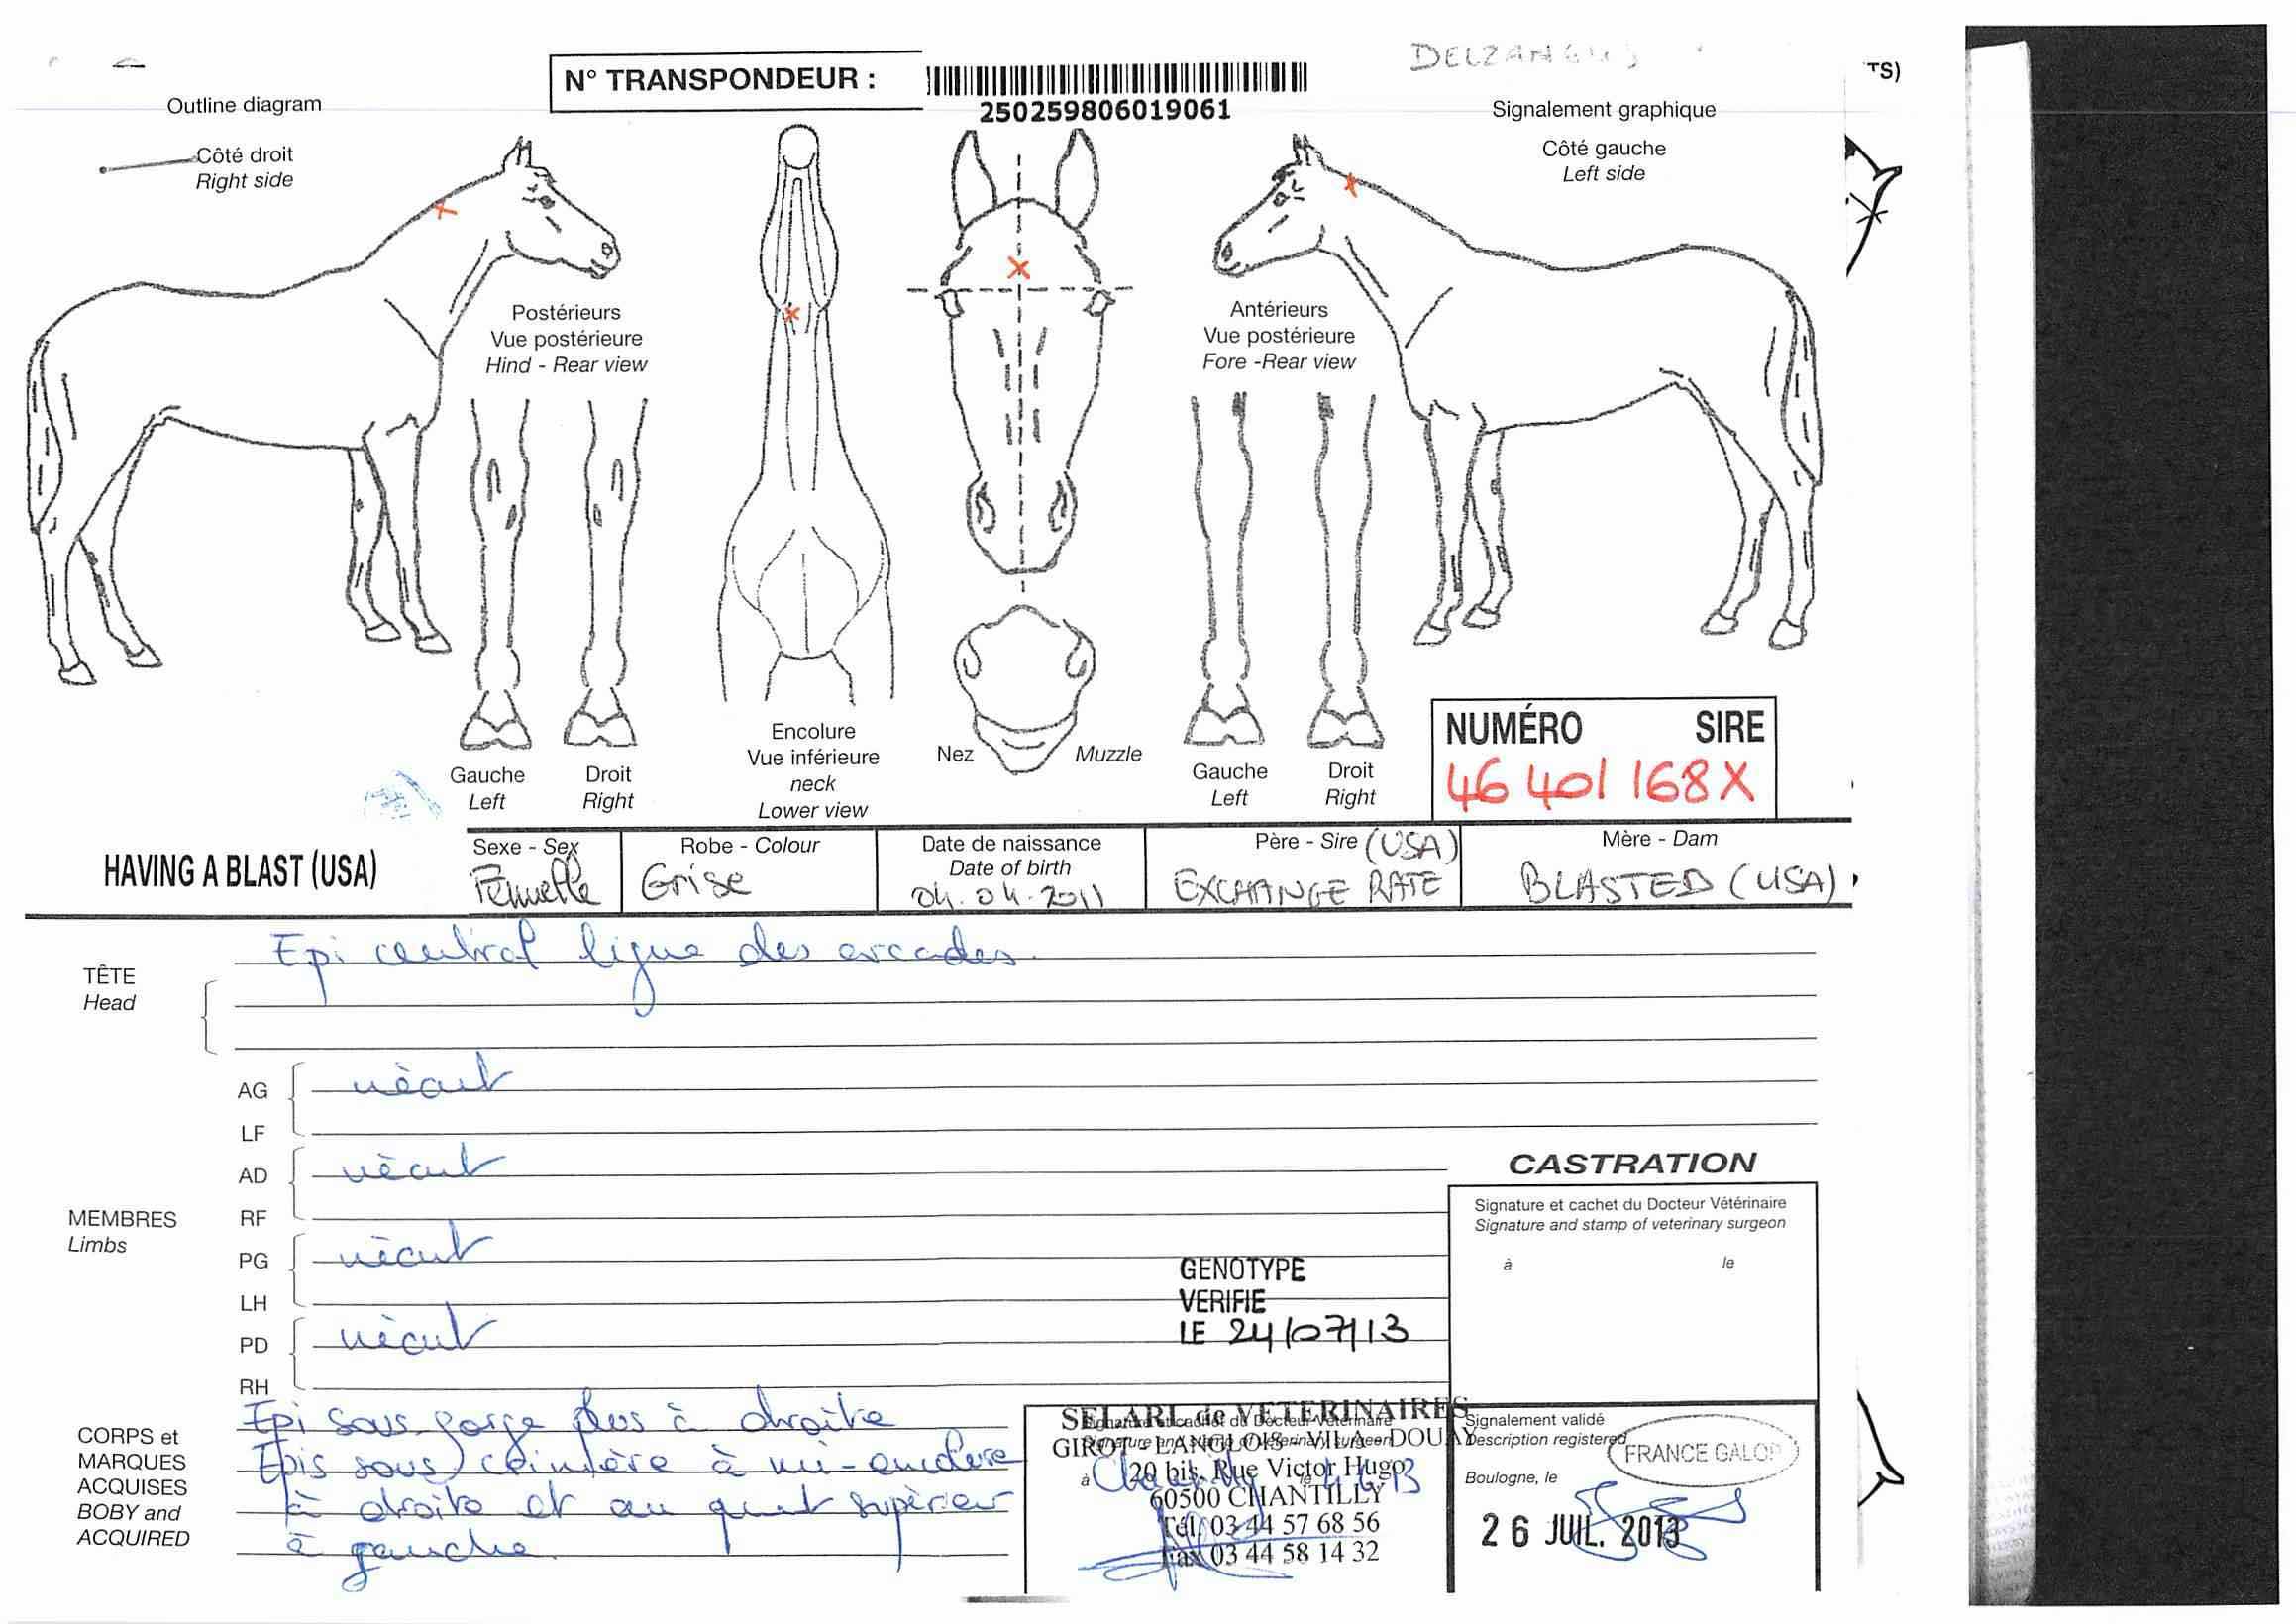 DELZANGLES
TS)
N° TRANSPONDEUR :
250259806019061
Outline diagram
Signalement graphique
Côté droit
Right side
Côté gauche
Left side
Postérieurs
Vue postérieure
Hind - Rear view
Antérieurs
Vue postérieure
Fore -Rear view
Encolure
Vue inférieure
neck
Lower view
Nez
Muzzle
Gauche
Left
Droit
Right
Gauche
Left
Droit
Right
NUMÉRO SIRE
46 401 168X
HAVING A BLAST (USA)
Sexe - Sex
Femelle
Robe - Colour
Grise
Date de naissance
Date of birth
04.04.2011
Père - Sire (USA)
EXCHANGE RATE
Mère - Dam
BLASTED (USA)
TÊTE
Head
Epi central ligne des arcades.
MEMBRES
Limbs
AG
LF
néant
AD
RF
néant
PG
LH
néant
PD
RH
néant
GENOTYPE
VERIFIE
LE 24/07/13
CASTRATION
Signature et cachet du Docteur Vétérinaire
Signature and stamp of veterinary surgeon
à le
CORPS et
MARQUES
ACQUISES
BOBY and
ACQUIRED
Epi sous gorge plus à droite
Epis sous crinière à mi-encolure
à droite et au quart supérieur
à gauche.
Signature et cachet du Docteur Vétérinaire
SELARL de VETERINAIRES
GIROT - LANGLOIS - VILA - DOUAY
à Chantilly le
20 bis, Rue Victor Hugo
60500 CHANTILLY
Tél. 03 44 57 68 56
Fax 03 44 58 14 32
Signalement validé
Description registered
FRANCE GALOP
Boulogne, le
26 JUIL. 2013